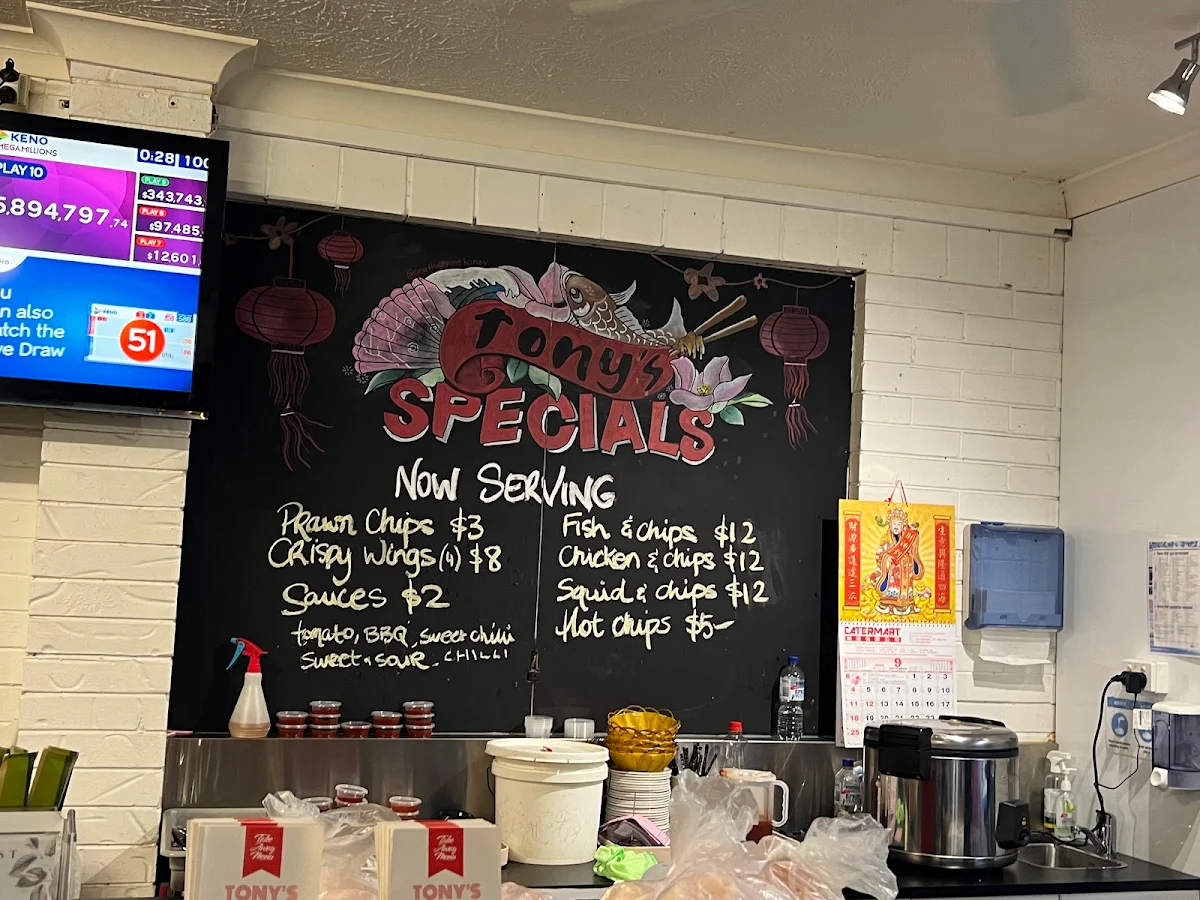 KENO
MEGAMILLIONS
0:28 100
PLAY 10
5,894,797.74
PLAY 9
$343,743.
PLAY 8
$97,485.
PLAY 7
$12,601.
also
the
Draw
KENO
51
Tony's
SPECIALS
NOW SERVING
Prawn Chips $3
Crispy Wings (4) $8
Sauces $2
tomato, BBQ, sweet chilli
sweet & sour. CHILLI
Fish & chips $12
Chicken & chips $12
Squid & chips $12
Hot chips $5-
CATERMART
9
1 2 3
4 5 6 7 8 9 10
11 12 13 14 15 16 17
18 19 20 21 22 23
25
Take
Away
Menu
TONY'S
Take
Away
Menu
TONY'S